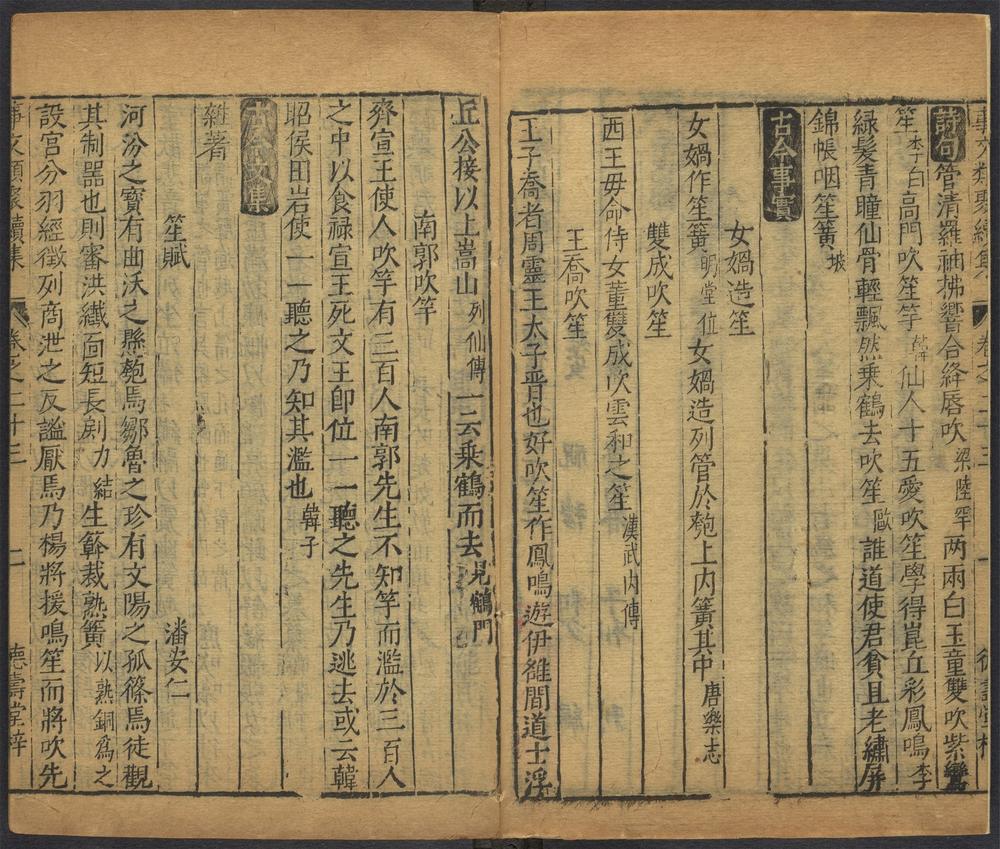 事文類聚續集 卷之二十三 一 德壽堂梓
詩句 管清羅袖拂響合絳唇吹 梁陸罕 两兩白玉童雙吹紫鸞
笙 李白 高門吹笙竽 韓 仙人十五愛吹笙學得崑丘彩鳳鳴 李
緑髮青瞳仙骨輕飄然乗鶴去吹笙 歐 誰道使君貧且老繡屏
錦帳咽笙簧 坡
古今事實
女媧造笙
女媧作笙簧 明堂位 女媧造列管於匏上内簧其中 唐樂志
雙成吹笙
西王毋命侍女董雙成吹雲和之笙 漢武内傳
王喬吹笙
王子喬者周靈王太子晋也好吹笙作鳳鳴遊伊雒間道士浮
丘公接以上嵩山 列仙傳 一云乗鶴而去 見鶴門
南郭吹竽
齊宣王使人吹竽有三百人南郭先生不知竽而濫於三百人
之中以食禄宣王死文王卽位一一聽之先生乃逃去或云韓
昭侯田岩使一一聽之乃知其濫也 韓子
古今文集
雜著
笙賦 潘安仁
河汾之寶有曲沃之懸匏焉鄒魯之珍有文陽之孤篠焉徒觀
其制器也則審洪纎面短長剧 力結 生簳裁熟簧 以熟銅爲之
設宫分羽經徵列商泄之反謐厭焉乃楊將援鳴笙而將吹先
事文類聚續集 卷之二十三 二 德壽堂梓